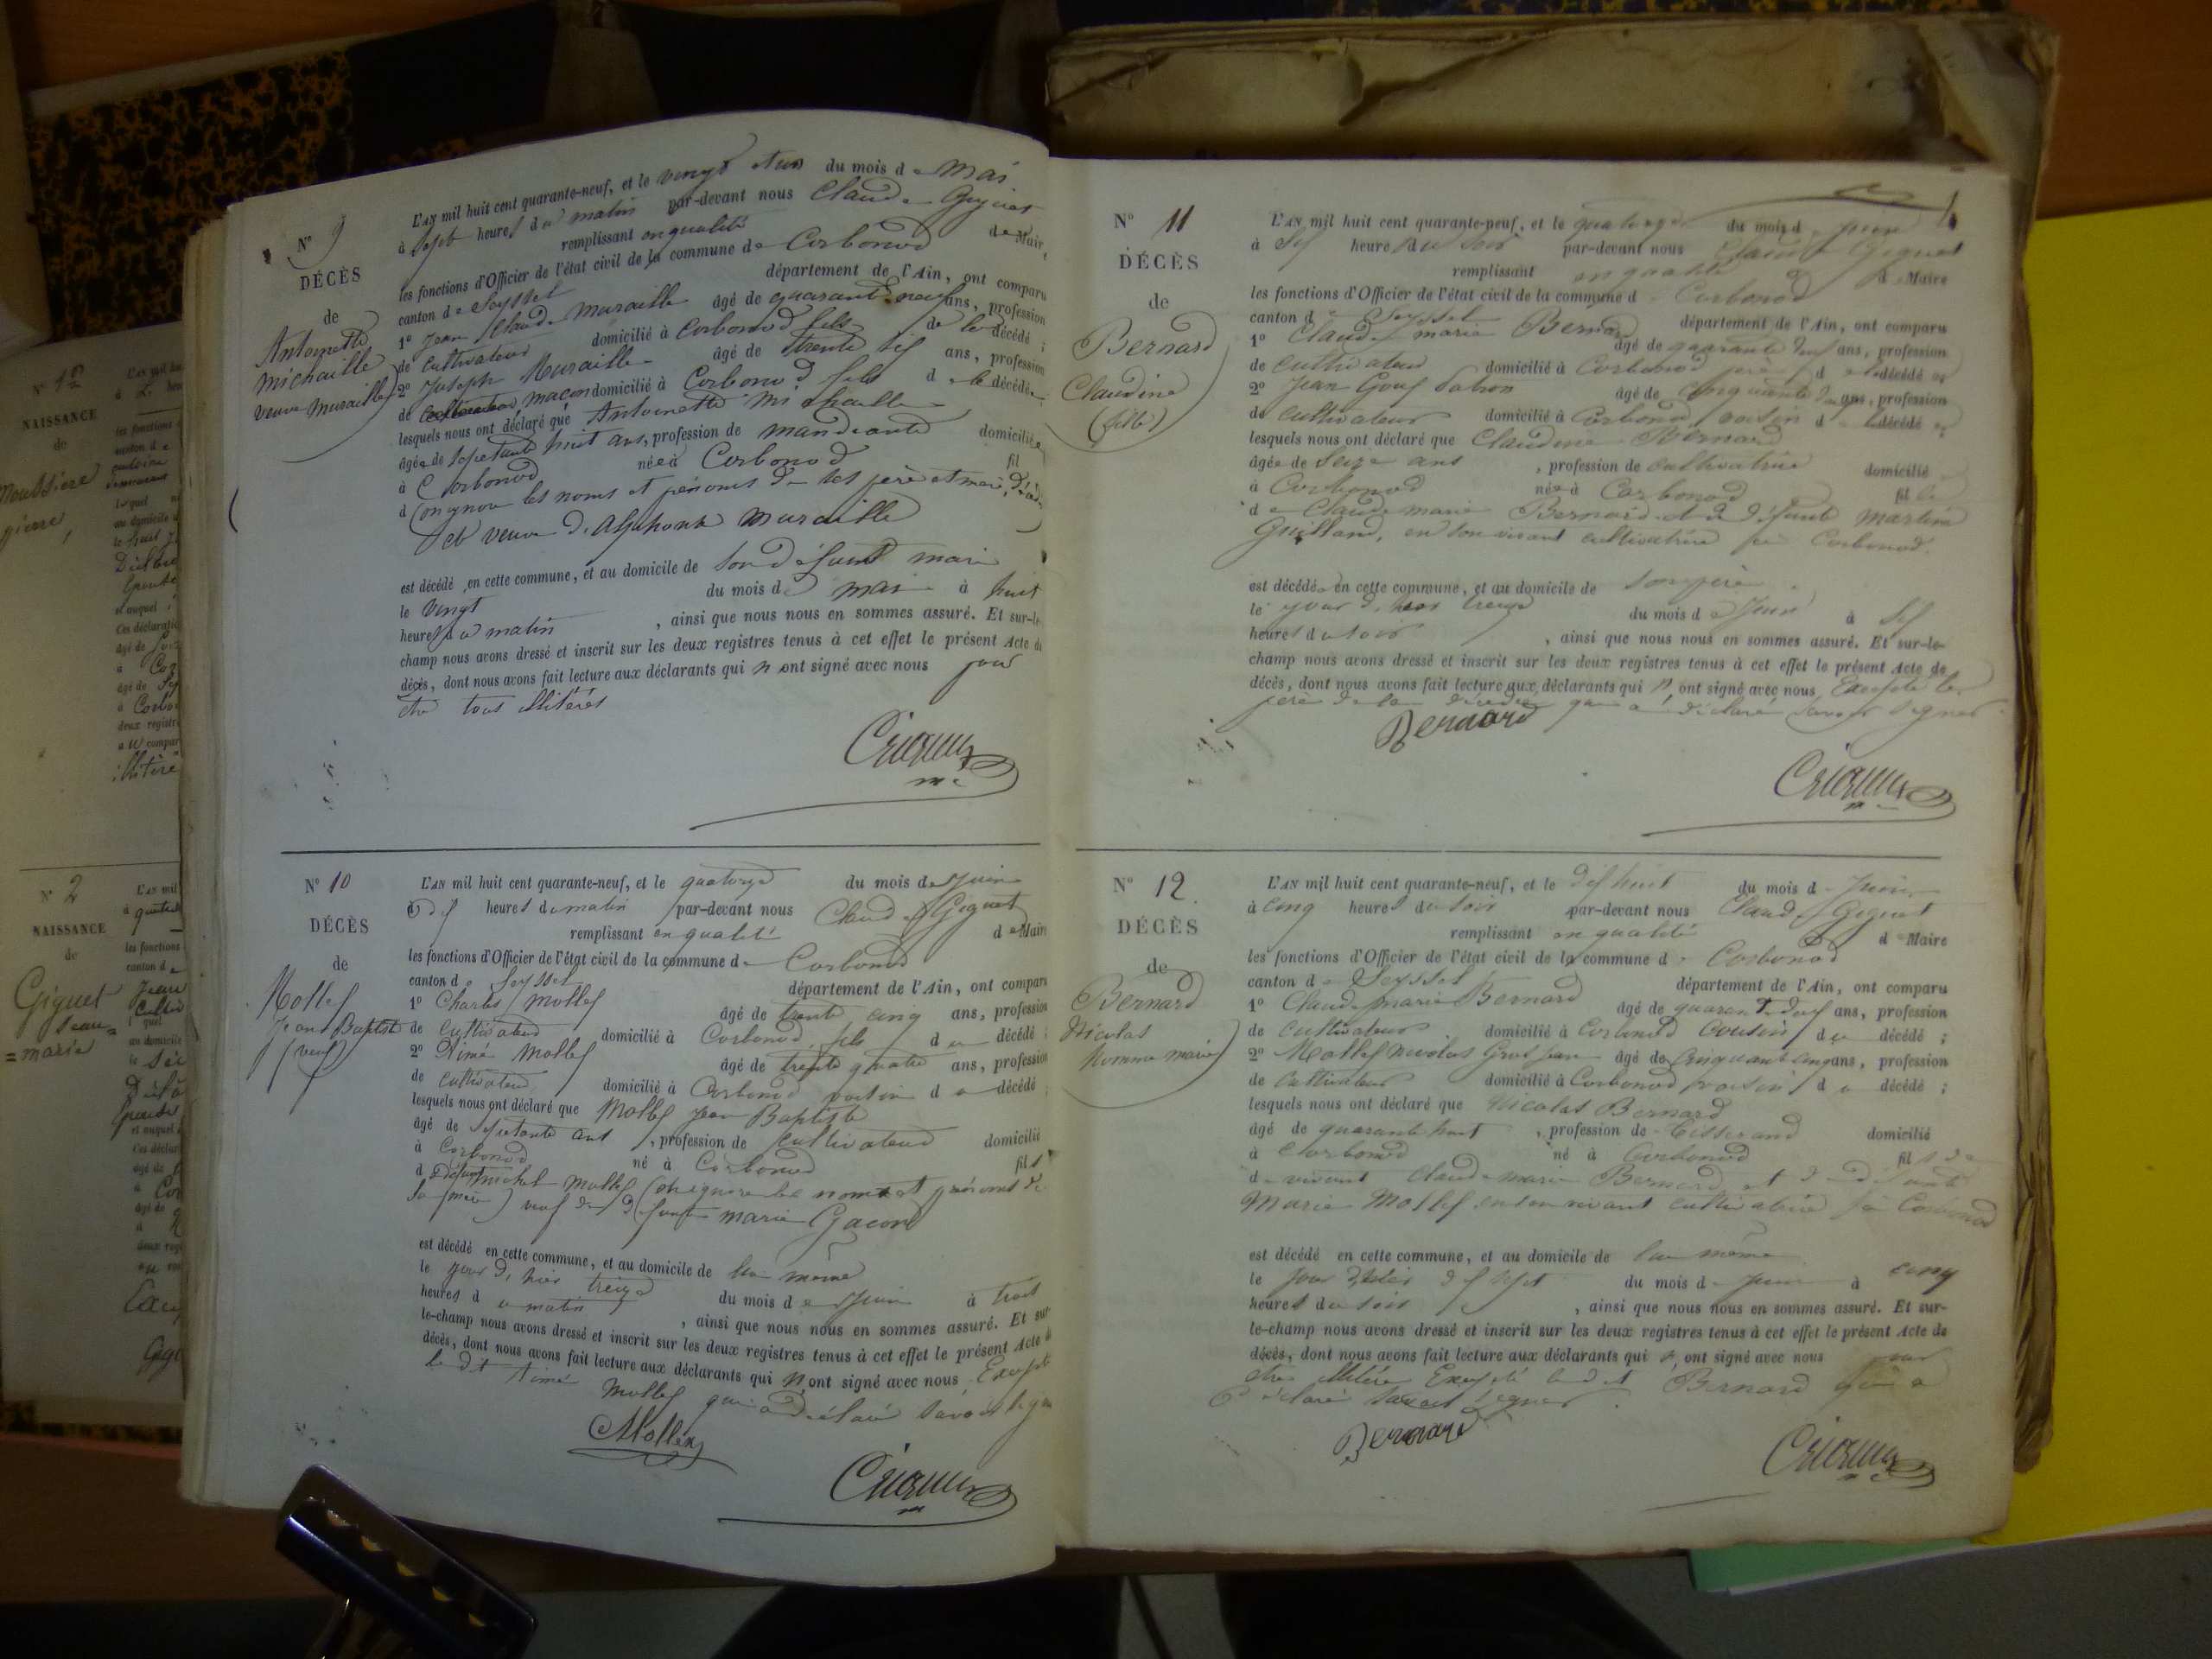 N° 12
NAISSANCE
de
Moussiere
pierre,
N° 2
NAISSANCE
de
Giguet
Jean=
=marie
N° 9
DÉCÈS
de
Antoinette
Michaille
veuve Muraille
L'AN mil huit cent quarante-neuf, et le vingt et un du mois de Mai
à Sept heures du matin par-devant nous Claude Giguet
remplissant en qualité de Maire
les fonctions d'Officier de l'état civil de la commune de Corbonod
canton de Seyssel département de l'Ain, ont comparu
1° Jean Claude Muraille âgé de quarante neuf ans, profession
de cultivateur domicilié à Corbonod fils de la décédé ;
2° Joseph Muraille âgé de trente six ans, profession
de maçon domicilié à Corbonod fils de la décédée
lesquels nous ont déclaré que Antoinette Michaille
âgée de septante huit ans, profession de mandiante domiciliée
à Corbonod née à Corbonod fil
d (on ignore les noms et prénoms de ses père et mère)
et veuve d'Alphonse Muraille
est décédé en cette commune, et au domicile de son défunt mari
le vingt du mois de mai à huit
heures du matin , ainsi que nous nous en sommes assuré. Et sur-le-
champ nous avons dressé et inscrit sur les deux registres tenus à cet effet le présent Acte de
décès, dont nous avons fait lecture aux déclarants qui n'ont signé avec nous pour
être tous illitérés
N° 10
DÉCÈS
de
Mollex
Jean Baptiste
(veuf)
L'AN mil huit cent quarante-neuf, et le quatorze du mois de Juin
à dix heures du matin par-devant nous Claude Giguet
remplissant en qualité de Maire
les fonctions d'Officier de l'état civil de la commune de Corbonod
canton de Seyssel département de l'Ain, ont comparu
1° Charles Mollex âgé de trente cinq ans, profession
de cultivateur domicilié à Corbonod, fils du décédé ;
2° Aimé Mollex âgé de trente quatre ans, profession
de cultivateur domicilié à Corbonod voisin du décédé ;
lesquels nous ont déclaré que Mollex Jean Baptiste
âgé de septante ans , profession de cultivateur domicilié
à Corbonod né à Corbonod fils
d défunt michel Mollex (on ignore les noms et prénoms de
sa mère) veuf de défunte marie Gacon
est décédé en cette commune, et au domicile de lui même
le jour d'hier treize du mois de Juin à trois
heures du matin , ainsi que nous nous en sommes assuré. Et sur
le-champ nous avons dressé et inscrit sur les deux registres tenus à cet effet le présent Acte de
décès, dont nous avons fait lecture aux déclarants qui n'ont signé avec nous Excepté
le dt Aimé Mollex qui a déclaré savoir signer
AMollex
N° 11
DÉCÈS
de
Bernard
Claudine
(fille)
L'AN mil huit cent quarante-neuf, et le quatorze du mois d juin
à Six heures du soir par-devant nous Claude Giguet
remplissant en qualité de Maire
les fonctions d'Officier de l'état civil de la commune d Corbonod
canton de Seyssel département de l'Ain, ont comparu
1° Claude marie Bernard âgé de quarante deux ans, profession
de cultivateur domicilié à Corbonod père de la décédée
2° Jean Goux âgé de cinquante ans, profession
de cultivateur domicilié à Corbonod voisin de la décédé
lesquels nous ont déclaré que Claudine Bernard
âgée de Seize ans , profession de cultivatrice domicilié
à Corbonod née à Corbonod fille
de Claude marie Bernard et de défunte Martine
Guilland, en son vivant cultivatrice à Corbonod.
est décédée en cette commune, et au domicile de son père
le jour d'hier treize du mois de Juin à Six
heures du soir , ainsi que nous nous en sommes assuré. Et sur-le-
champ nous avons dressé et inscrit sur les deux registres tenus à cet effet le présent Acte de
décès, dont nous avons fait lecture aux déclarants qui n'ont signé avec nous, Excepté le
père de la décédée qui a déclaré savoir signer
Bernard
N° 12.
DÉCÈS
de
Bernard
Nicolas
homme marié
L'AN mil huit cent quarante-neuf, et le dix huit du mois de Juin
à cinq heures du soir par-devant nous Claude Giguet
remplissant en qualité de Maire
les fonctions d'Officier de l'état civil de la commune de Corbonod
canton de Seyssel département de l'Ain, ont comparu
1° Claude marie Bernard âgé de quarante deux ans, profession
de cultivateur domicilié à Corbonod cousin du décédé ;
2° Mollex Nicolas Gros Jean âgé de cinquante cinq ans, profession
de cultivateur domicilié à Corbonod voisin du décédé ;
lesquels nous ont déclaré que Nicolas Bernard
âgé de quarante huit , profession de tisserand domicilié
à Corbonod né à Corbonod fils de
de vivant Claude marie Bernard et de défunte
Marie Mollex en son vivant cultivatrice à Corbonod
est décédé en cette commune, et au domicile de lui même
le jour d'hier dix sept du mois de Juin à cinq
heures du soir , ainsi que nous nous en sommes assuré. Et sur-
le-champ nous avons dressé et inscrit sur les deux registres tenus à cet effet le présent Acte de
décès, dont nous avons fait lecture aux déclarants qui n'ont signé avec nous pour
être illitéré Excepté le dit Bernard qui a
déclaré savoir signer.
Bernard